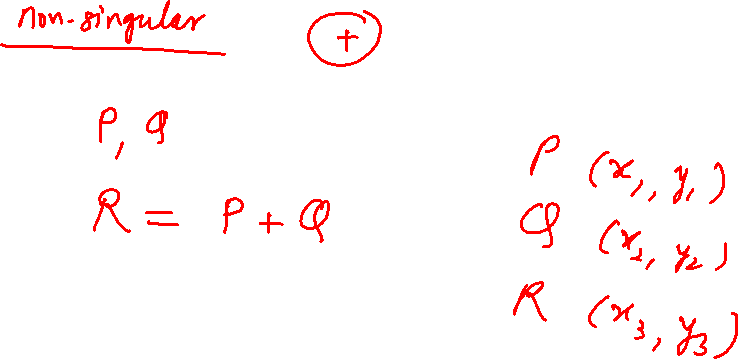 non-singular +
P, Q
R = P + Q
P (x₁, y₁)
Q (x₂, y₂)
R (x₃, y₃)